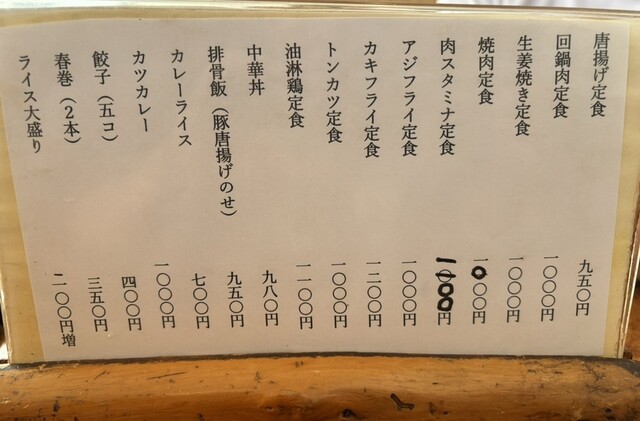 唐揚げ定食 九五〇円
回鍋肉定食 一〇〇〇円
生姜焼き定食 一〇〇〇円
焼肉定食 一〇〇〇円
肉スタミナ定食 円
アジフライ定食 一〇〇〇円
カキフライ定食 一二〇〇円
トンカツ定食 一〇〇〇円
油淋鶏定食 一一〇〇円
中華丼 九八〇円
排骨飯（豚唐揚げのせ） 九五〇円
カレーライス 七〇〇円
カツカレー 一〇〇〇円
餃子（五コ） 四〇〇円
春巻（2本） 三五〇円
ライス大盛り 二〇〇円増